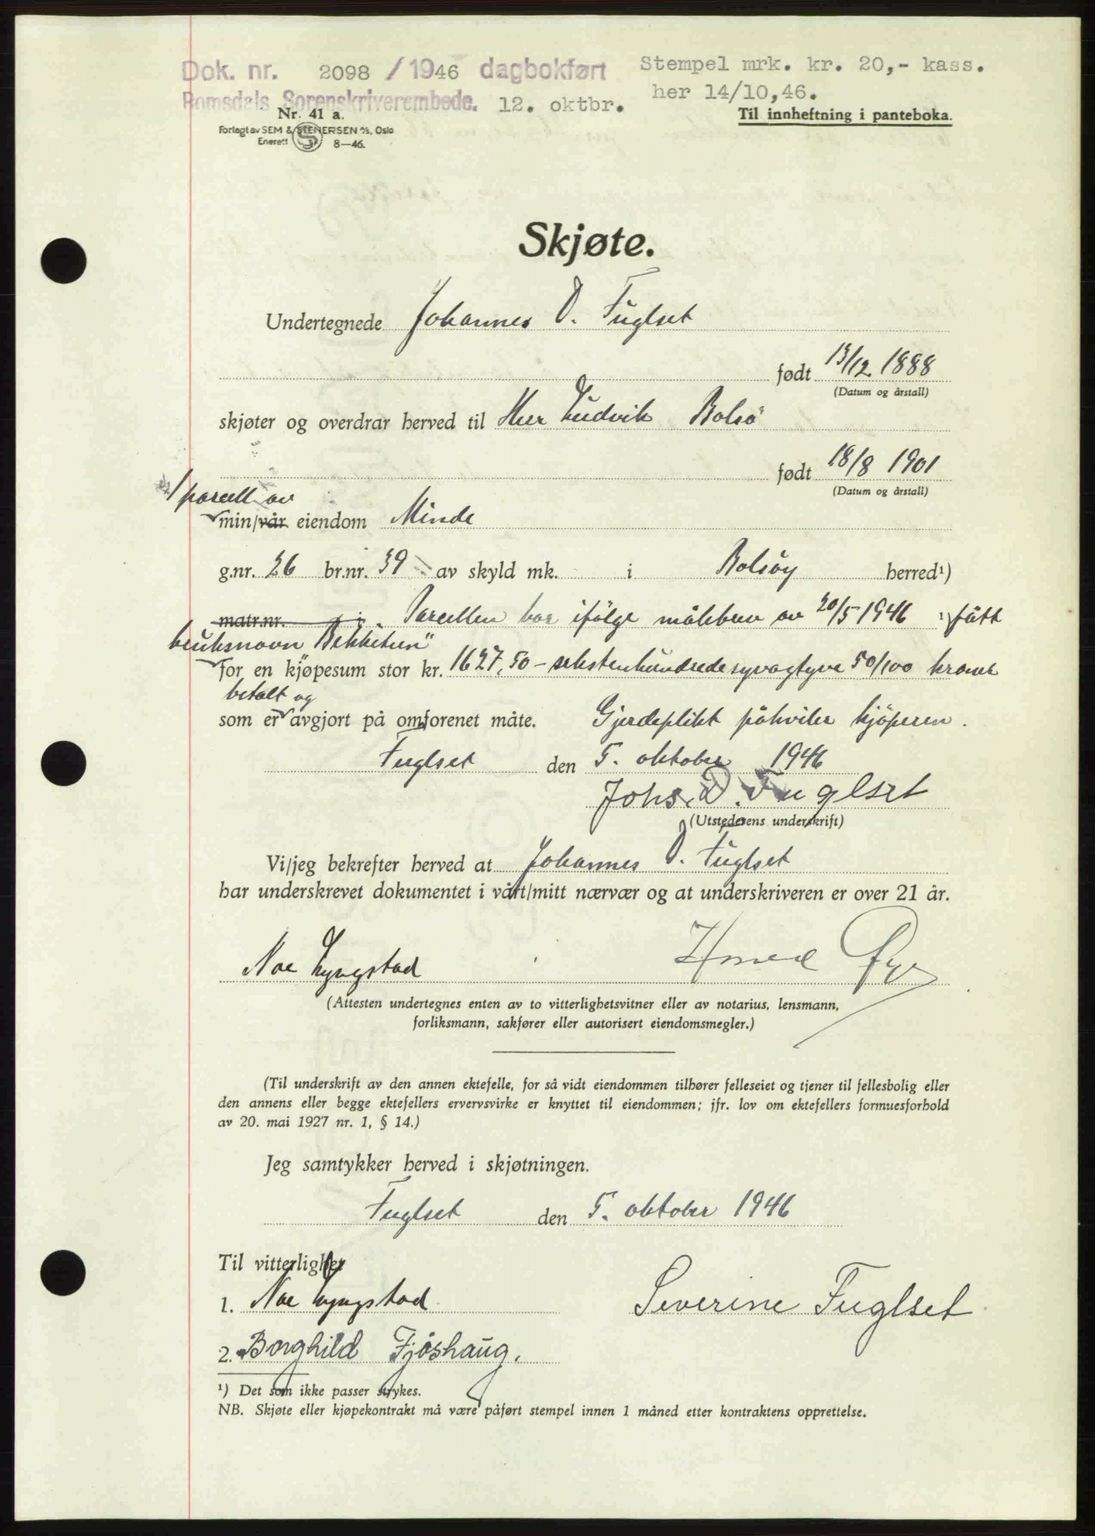 Dok. nr. 2098 / 1946 dagbokført
Romsdals Sorenskriverembede. 12. oktbr.
Stempel mrk. kr. 20,- kass.
her 14/10,46.
Nr. 41 a.
Forlagt av SEM & STENERSEN A/S, Oslo
Enerett S 8—46.
Til innheftning i panteboka.
Skjøte.
Undertegnede Johannes D. Fuglset
født 13/12 1888
(Datum og årstall)
skjøter og overdrar herved til Herr Ludvik Bolsö
født 18/8 1901
(Datum og årstall)
1 parcell av
min/vår eiendom Minde
g.nr. 26 br.nr. 39 av skyld mk. i Bolsöy herred¹)
matr.nr. i Parcellen har ifölge målebrev av 20/5 1946 ¹) fått
bruksnavn
for en kjøpesum stor kr. 1627,50 – sekstenhundredesyvogtyve 50/100 kroner
betalt og
som er avgjort på omforenet måte. Gjerdeplikt påhviler kjöperen.
Fuglset den 5. oktober 1946
Johs. D. Fuglset
(Utstederens underskrift)
Vi/jeg bekrefter herved at Johannes D. Fuglset
har underskrevet dokumentet i vårt/mitt nærvær og at underskriveren er over 21 år.
Noe Lyngstad Øye
(Attesten undertegnes enten av to vitterlighetsvitner eller av notarius, lensmann,
forliksmann, sakfører eller autorisert eiendomsmegler.)
(Til underskrift av den annen ektefelle, for så vidt eiendommen tilhører felleseiet og tjener til fellesbolig eller
den annens eller begge ektefellers ervervsvirke er knyttet til eiendommen; jfr. lov om ektefellers formuesforhold
av 20. mai 1927 nr. 1, § 14.)
Jeg samtykker herved i skjøtningen.
Fuglset den 5. oktober 1946
Til vitterlighet
1. Noe Lyngstad
Severine Fuglset
2. Borghild Fjöshaug.
¹) Det som ikke passer strykes.
NB. Skjøte eller kjøpekontrakt må være påført stempel innen 1 måned etter kontraktens opprettelse.